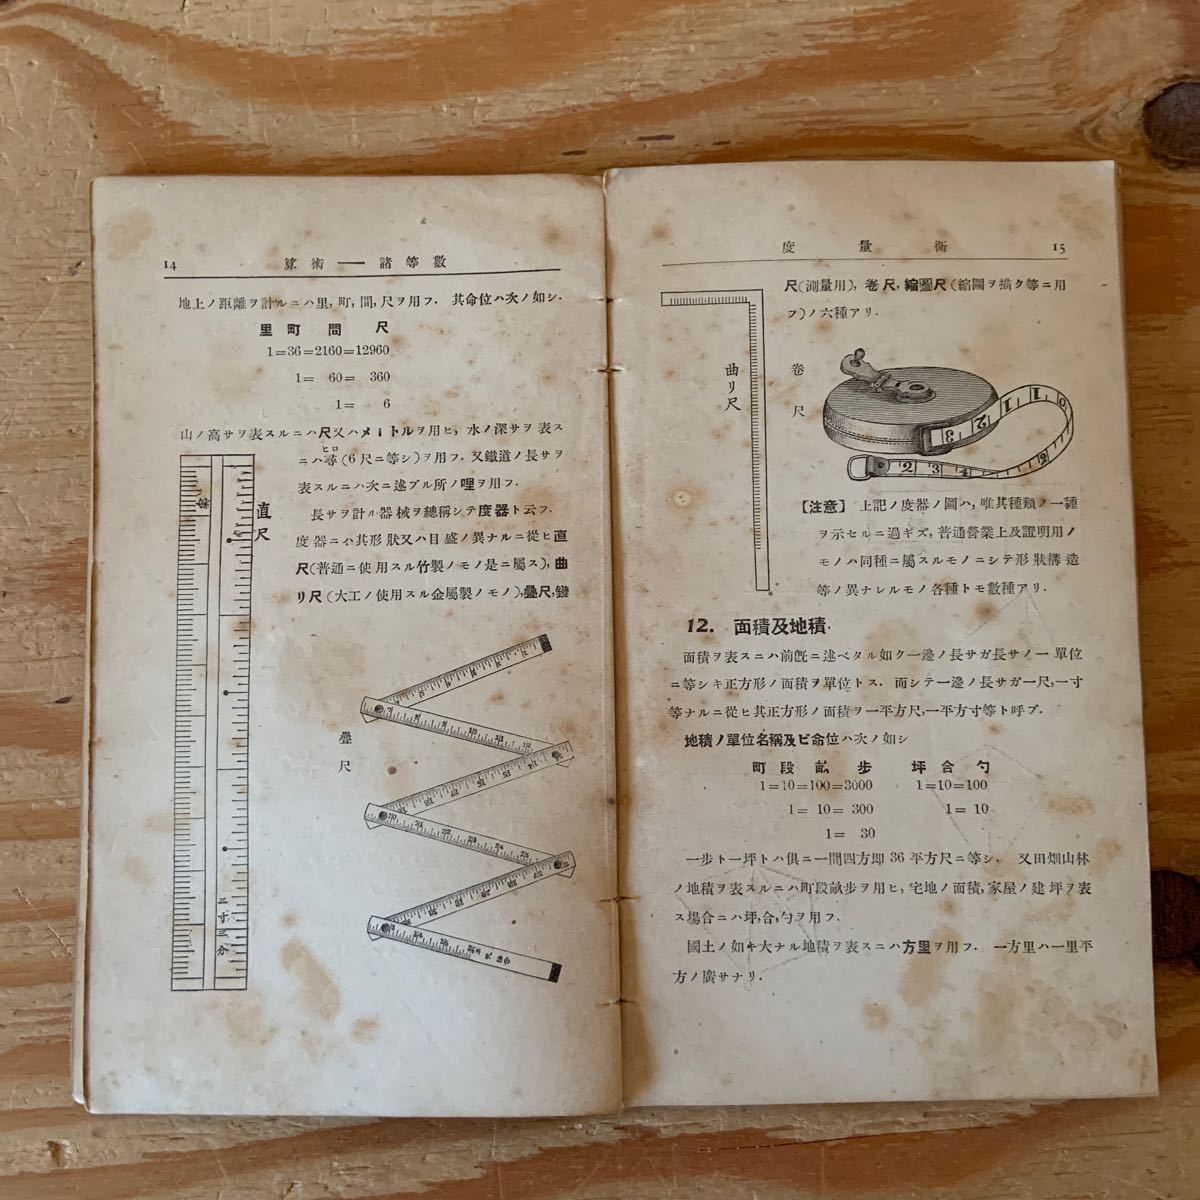 14 算術——諸等數
地上ノ距離ヲ計ルニハ里,町,間,尺ヲ用フ. 其命位ハ次ノ如シ.
里 町 間 尺
1=36=2160=12960
1= 60= 360
1= 6
山ノ高サヲ表スルニハ尺又ハメートルヲ用ヒ, 水ノ深サヲ表ス
ヒロ
ニハ尋(6尺ニ等シ)ヲ用フ. 又鐵道ノ長サヲ
表スルニハ次ニ述ブル所ノ哩ヲ用フ.
長サヲ計ル器械ヲ總稱シテ度器ト云フ.
度器ニハ其形狀又ハ目盛ノ異ナルニ從ヒ直
尺(普通ニ使用スル竹製ノモノ是ニ屬ス), 曲
リ尺(大工ノ使用スル金屬製ノモノ), 疊尺, 鏈
直尺
二寸三分
疊尺
度量衡 15
尺(測量用), 卷尺, 縮圖尺(縮圖ヲ描ク等ニ用
フ)ノ六種アリ.
曲リ尺
卷尺
【注意】 上記ノ度器ノ圖ハ, 唯其種類ノ一種
ヲ示セルニ過ギズ, 普通營業上及證明用ノ
モノハ同種ニ屬スルモノニシテ形狀構造
等ノ異ナレルモノ各種トモ數種アリ.
12. 面積及地積.
面積ヲ表スニハ前旣ニ述ベタル如ク一邊ノ長サガ長サノ一單位
ニ等シキ正方形ノ面積ヲ單位トス. 而シテ一邊ノ長サガ一尺, 一寸
等ナルニ從ヒ其正方形ノ面積ヲ一平方尺, 一平方寸等ト呼ブ.
地積ノ單位名稱及ビ命位ハ次ノ如シ
町 段 畝 步 坪 合 勺
1=10=100=3000 1=10=100
1= 10= 300 1= 10
1= 30
一步ト一坪トハ俱ニ一間四方卽36平方尺ニ等シ. 又田畑山林
ノ地積ヲ表スルニハ町段畝步ヲ用ヒ, 宅地ノ面積, 家屋ノ建坪ヲ表
ス場合ニハ坪, 合, 勺ヲ用フ.
國土ノ如キ大ナル地積ヲ表スニハ方里ヲ用フ. 一方里ハ一里平
方ノ廣サナリ.